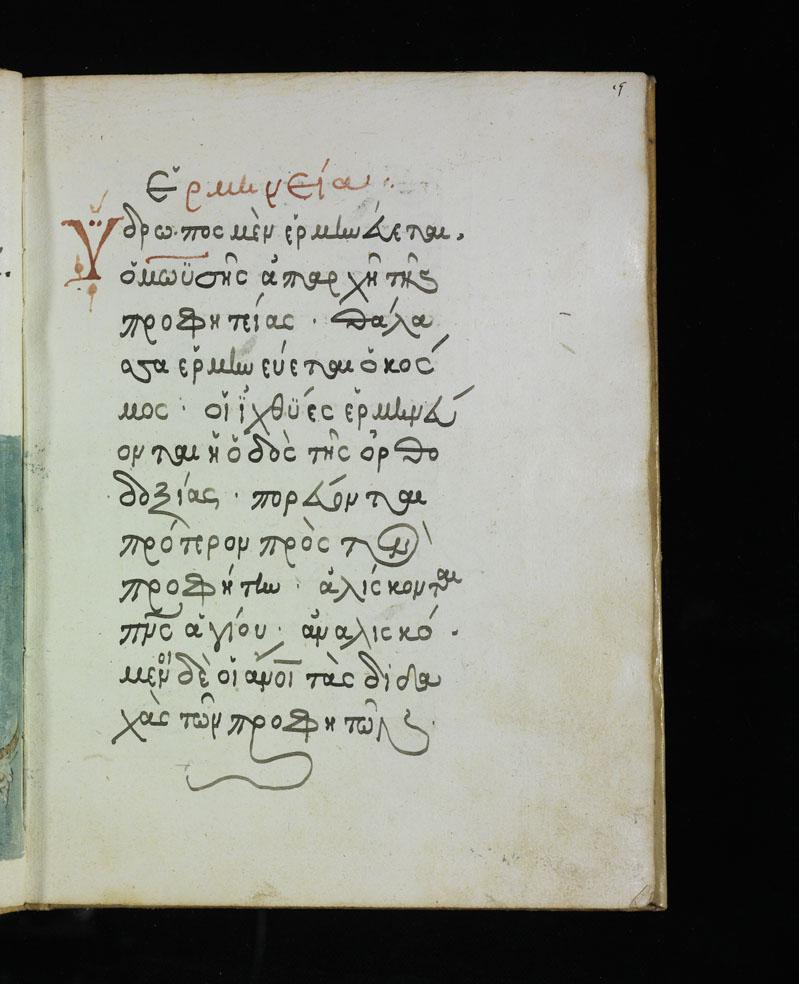 Ἑρμηνεία
Ὕδρωπος μὲν ἑρμηνεύεται,
ὁ μωϋσῆς ἀπαρχὴ τῆς
προφητείας · θάλα
σσα ἑρμηνεύεται ὁ κός
μος · οἱ ἰχθύες ἑρμηνεύ
ονται ἡ ὁδὸς τῆς ὀρθο
δοξίας · πορεύονται
πρότερον πρὸς τὸν
προφήτην · ἁλίσκονται
πνς ἁγίου · ἀναλισκό
μενοι δὲ οἱ ἀνοι τὰς διδα
χὰς τῶν προφητῶν